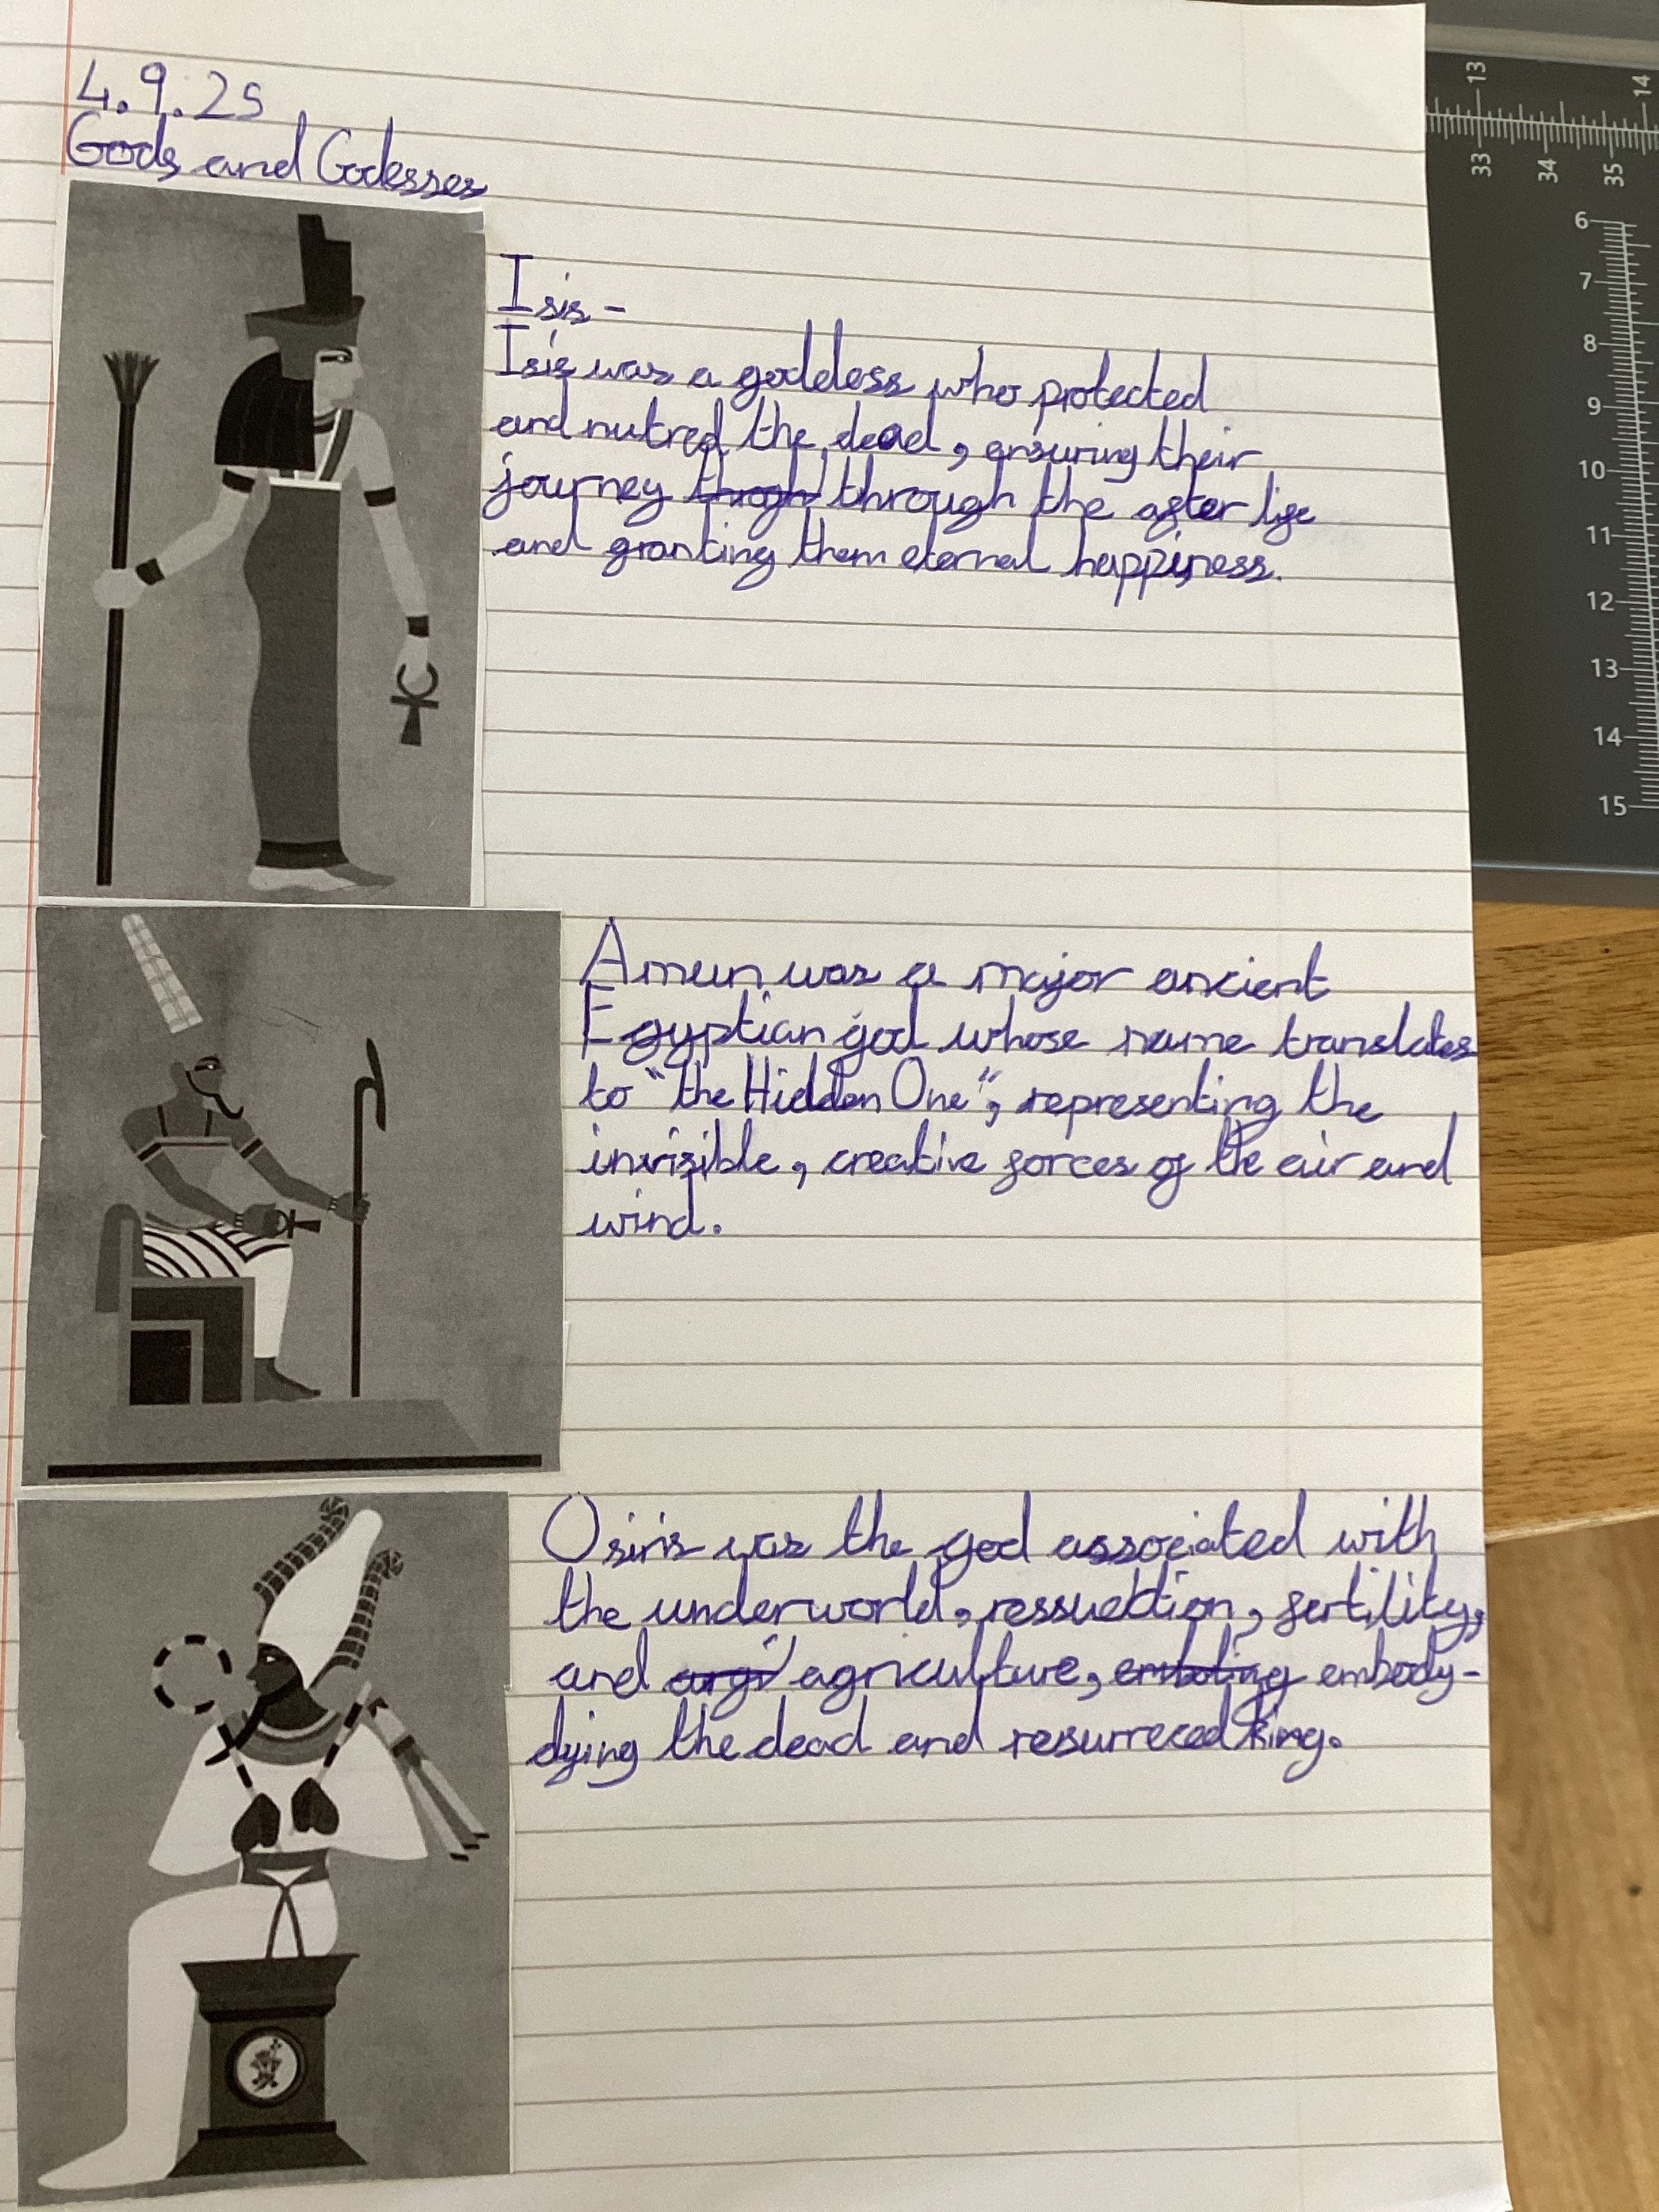 4.9.25
Gods and Godesses
Isis-
Isis was a goddess who protected
and nutred the dead, ensuring their
journey throgh through the after life
and granting them eternal happiness.
Amun was a major ancient
Egyptian god whose name translates
to "the Hidden One", representing the
invisible, creative forces of the air and
wind.
Osiris was the god associated with
the underworld, ressuebtion, fertility,
and argi agriculture, embody-
dying the dead and resurreced king.
13 14
33 34 35
6
7
8
9
10
11
12
13
14
15